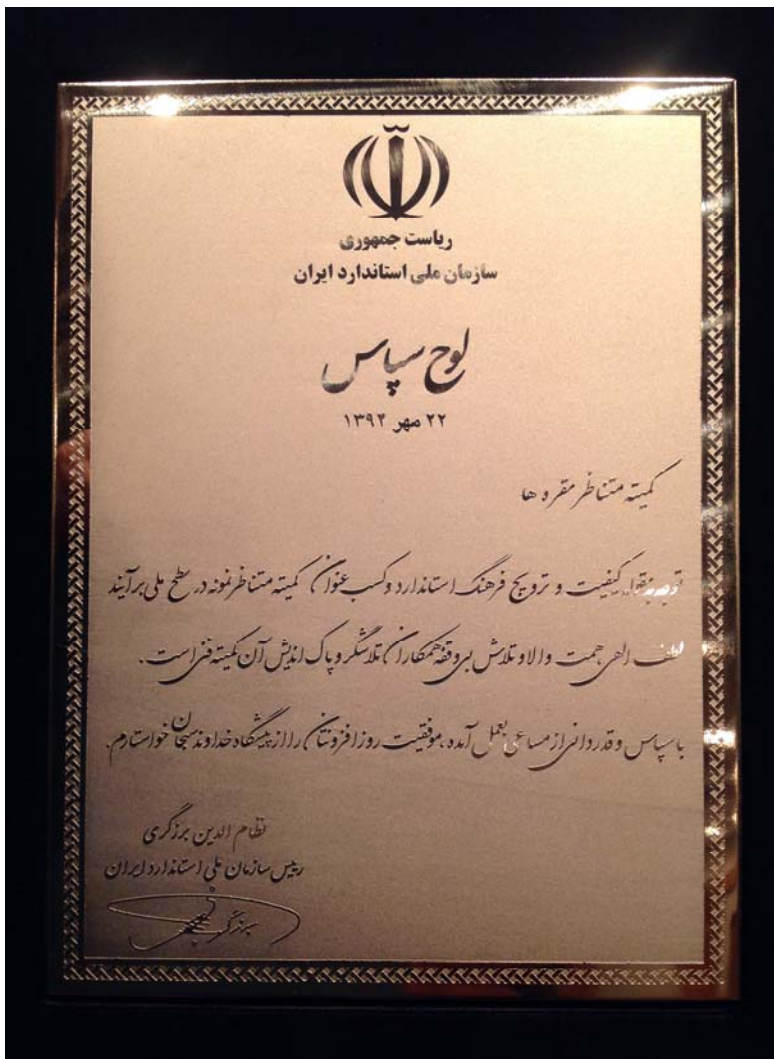 ریاست جمهوری
سازمان ملی استاندارد ایران
لوح سپاس
۲۲ مهر ۱۳۹۴
کمیته متناظر مقره ها
کیفیت و ترویج فرهنگ استاندارد و کسب عنوان کمیته متناظر نمونه در سطح ملی برآیند
لطف الهی همت والا و تلاش بی وقفه همکاران تلاشگر و پاک اندیش آن کمیته فنی است.
با سپاس و قدردانی از مساعی بعمل آمده، موفقیت روزافزونتان را از پیشگاه خداوند سبحان خواستارم.
نظام الدین برزگری
رییس سازمان ملی استاندارد ایران